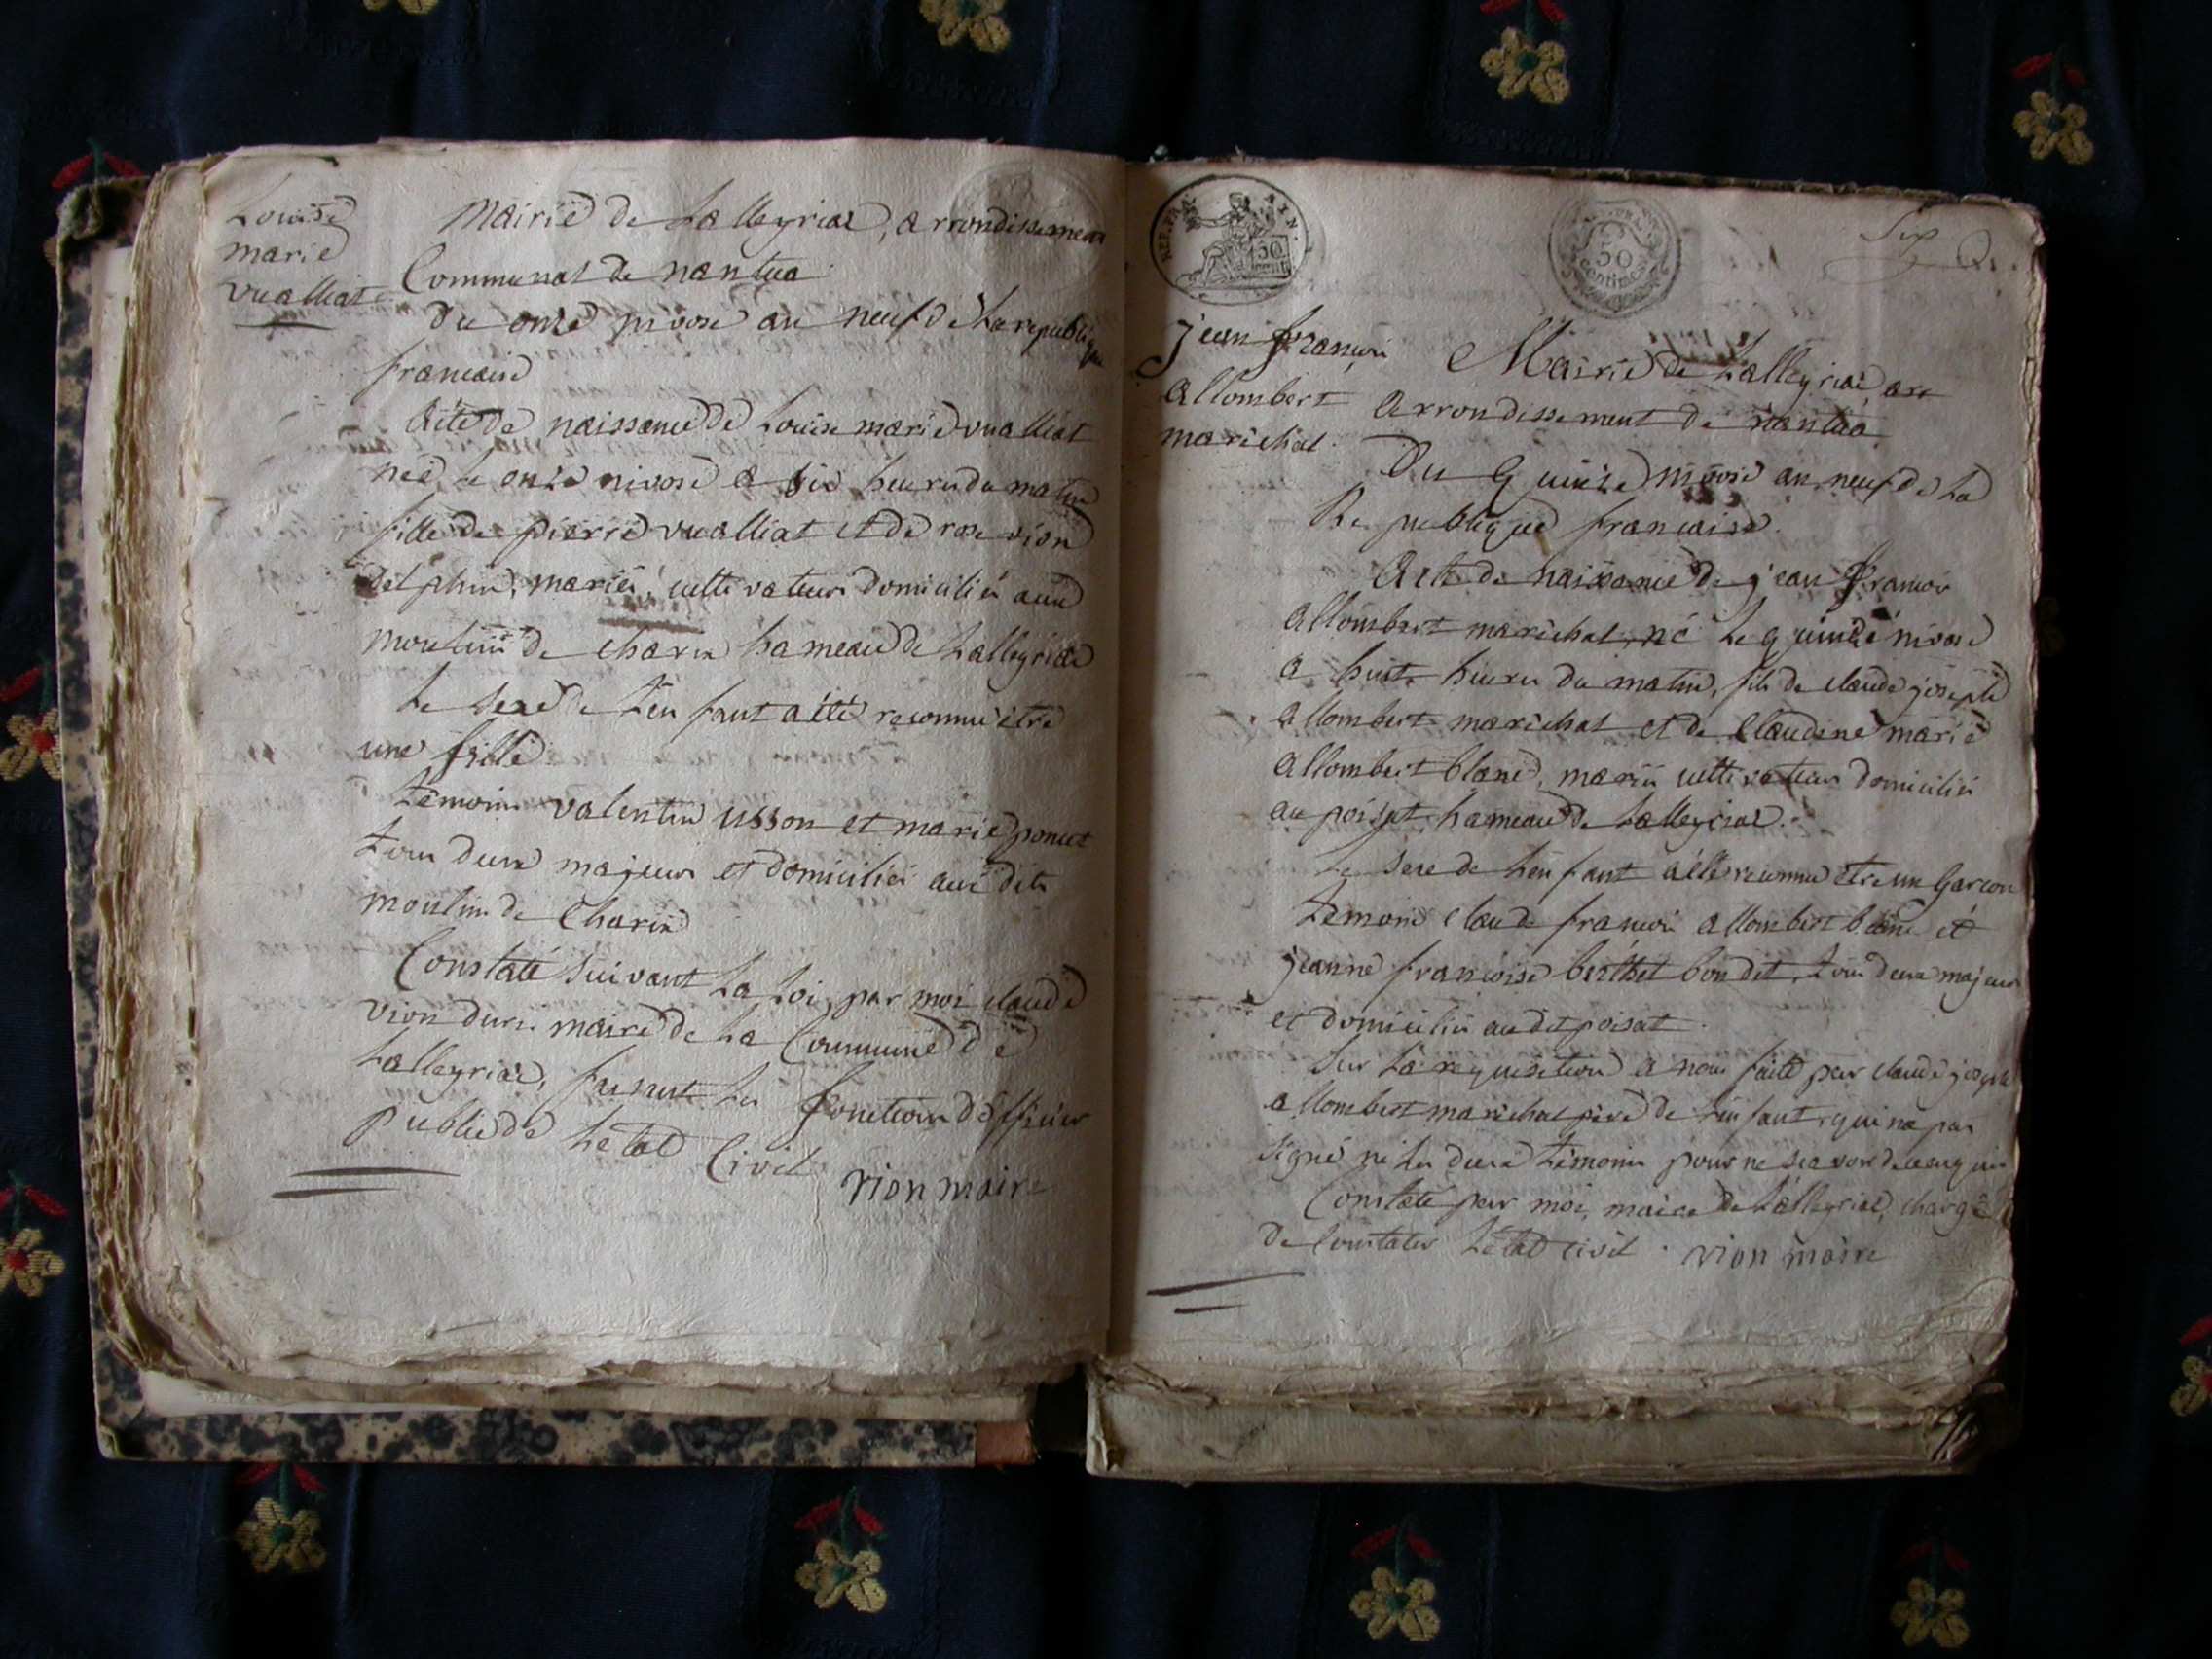 Louise
marie
vualliat
Mairie de Lalleyriat, arrondissement
Communal de nantua
du onze nivose an neuf de La republique
francaise
Acte de naissance de Louise marie vualliat
née le onze nivose a six heures du matin
fille de pierre vualliat et de rose vion
delphin, mariés, cultivateurs domiciliés aux
moulin de charix hameau de Lalleyriat
Le sexe de L'enfant a été reconnu être
une fille
Temoins valentin usson et marie poncet
tous deux majeurs et domiciliés aux dits
moulin de Charix
Constaté suivant La Loi, par moi claude
vion maire de La Commune de
Lalleyriat, faisant Les fonctions d'officier
public de Letat Civil
vion maire
REP. FRA. FIN.
50
cent.
50
centimes
Six
jean francois
allombert
marichal
Mairie de Lalleyriat, arr
arrondissement de nantua
Du quinze nivose an neuf de La
Republique francaise.
Acte de naissance de jean francois
allombert marichal, né Le quinze nivose
a huit heures du matin, fils de claude joseph
allombert marichal et de Claudine marie
allombert blanc, mariés cultivateurs domiciliés
au poizat hameau de Lalleyriat.
Le sexe de L'enfant a été reconnu etre un Garcon
Temoins claude francois allombert blanc et
jeanne francoise berthet bondet, tous deux majeurs
et domiciliés au dit poisat.
Sur La requisition a nous faite par claude joseph
allombert marichal pere de L'enfant, qui na pas
signé ni Les deux témoins pour ne scavoir de ce enquis
Constaté par moi, maire de Lalleyriat, chargé
de Constater Letat civil. vion maire